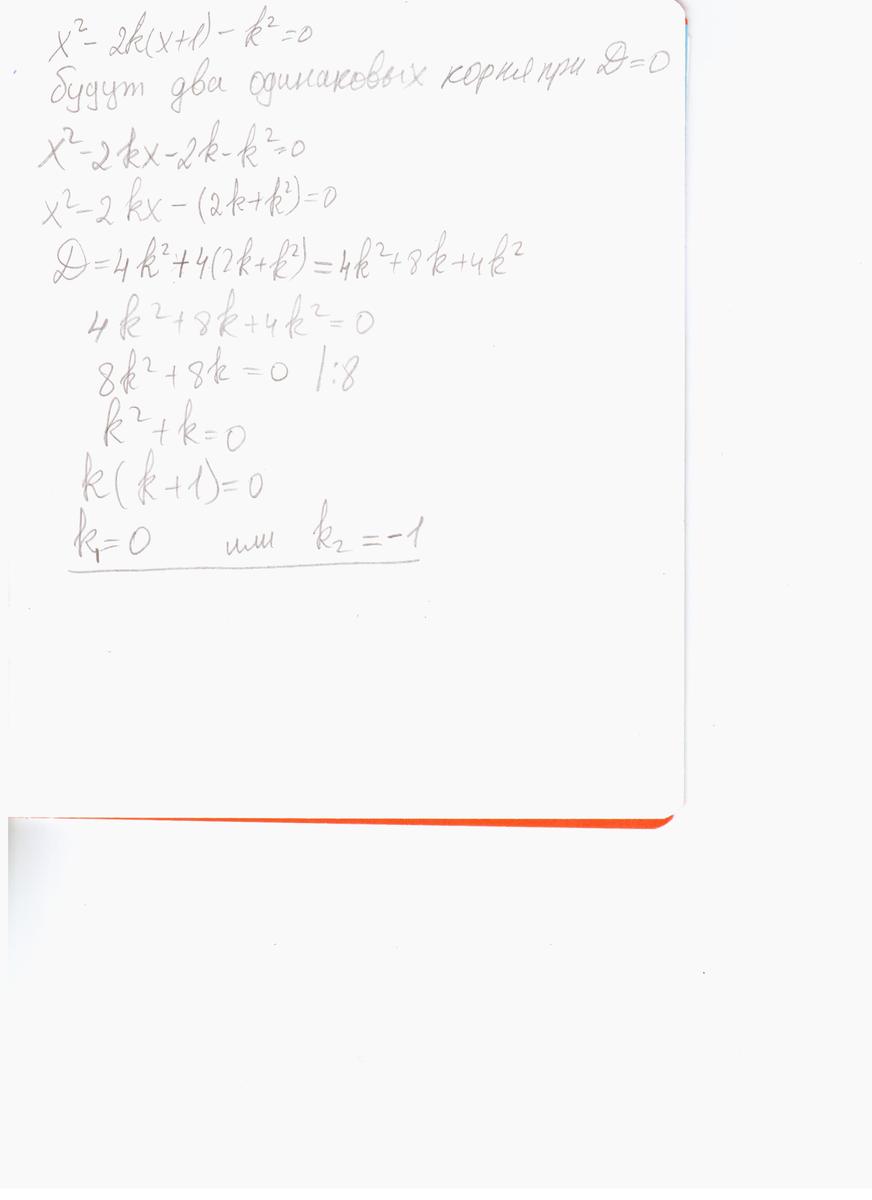 x² - 2k(x+1) - k² = 0
будут два одинаковых корня при D=0
x² - 2kx - 2k - k² = 0
x² - 2kx - (2k+k²) = 0
D = 4k² + 4(2k+k²) = 4k² + 8k + 4k²
4k² + 8k + 4k² = 0
8k² + 8k = 0 |:8
k² + k = 0
k(k+1) = 0
k₁ = 0 или k₂ = -1